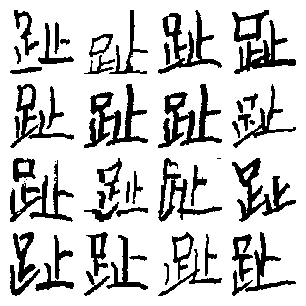 趾趾趾趾
趾趾趾趾
趾趾趾趾
趾趾趾趾